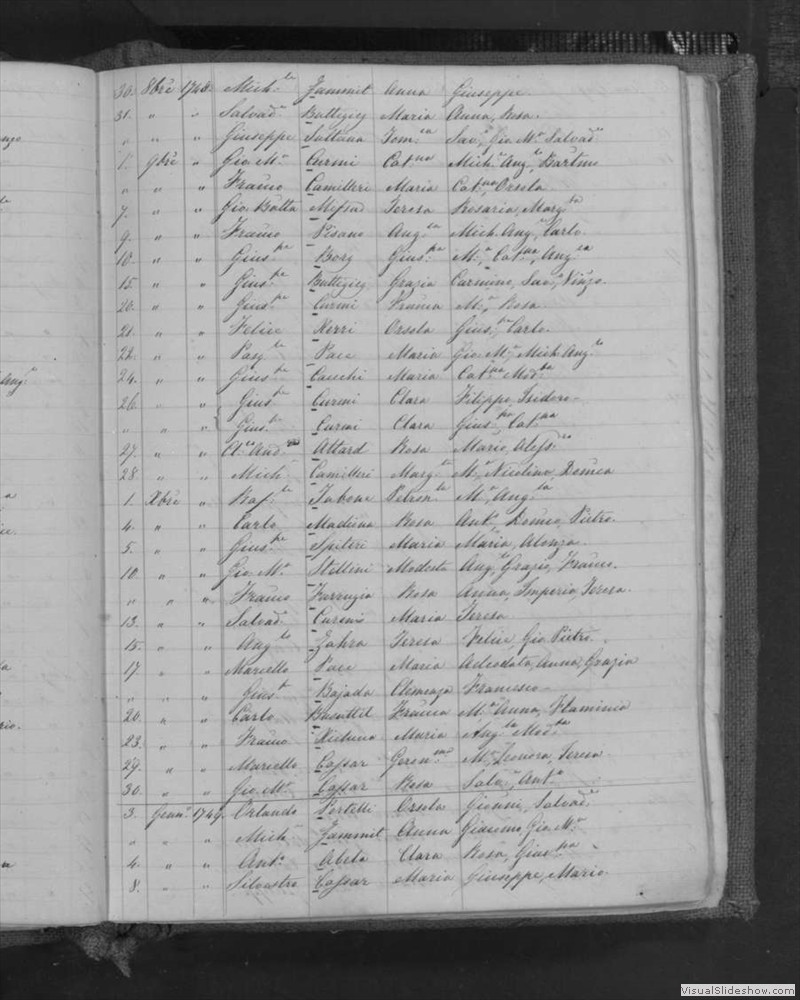 30. 8bre 1748. Mich.le Zammit Anna Giuseppe.
31. " " Salvad.e Buttigieg Maria Anna, Rosa.
" " " Giuseppe Sultana Tom.sa Sav.e, Gio M.a Salvad.e
1. 9bre " Gio M.a Curmi Cat.na Mich. Ang.lo Bartmo
" " " Franco Camilleri Maria Cat.na Orsola
7. " " Gio Batta Mifsud Teresa Rosaria, Marg.ta
9. " " Franco Pisano Ang.la Mich. Ang.lo, Carlo.
10. " " Gius.pe Borg Gius.pa M.a, Cat.na, Ang.la
15. " " Gius.pe Buttigieg Grazia Carmino, Sav.e, Vinzo.
20. " " Gius.pe Curmi Franca M.a, Rosa.
21. " " Felice Xerri Orsola Gius.pe Carlo.
22. " " Pasq.le Pace Maria Gio M.a Mich. Ang.lo
24. " " Gius.pe Cauchi Maria Cat.na Mod.ta
26. " " Gius.pe Curmi Clara Filippo, Isidoro.
" " " Gius.pe Curmi Clara Gius.pa, Cat.na
27. " " And. Attard Rosa Mario,
28. " " Mich. Camilleri Marg.ta M.a Nicolina, Domca
1. Xbre " Raf.le Tabone Petron.la M.a Ang.la
4. " " Carlo Madiona Rosa Ant.o, Domco, Pietro.
5. " " Gius.pe Spiteri Maria Maria, Alonza.
10. " " Gio. M.a Stellini Modesta Ang.lo Grazio, Franco.
" " " Franco Farrugia Rosa Anna, Imperia, Teresa.
13. " " Salvad.e Curmi Maria Teresa
15. " " Ang.lo Zahra Teresa Felice, Gio Pietro.
17. " " Marcello Pace Maria Adeodata, Anna, Grazia
" " " Gius.e Bajada Clemenza Francesco.
20. " " Carlo Busuttil Franca M.a Anna, Flaminia
23. " " Franco Xicluna Maria Ang.la Mod.ta
29. " " Marcello Cassar Geron.ma M.a Leonora, Teresa
30. " " Gio. M.a Cassar Rosa Salv.e, Ant.o
3. Genn.o 1749. Orlando Portelli Orsola Salvad.e
" " " Mich. Zammit Anna Giacomo, Gio M.a
4. " " Ant.o Abela Clara Rosa, Gius.pa
8. " " Silvestro Cassar Maria Giuseppe, Mario.
VisualSlideshow.com